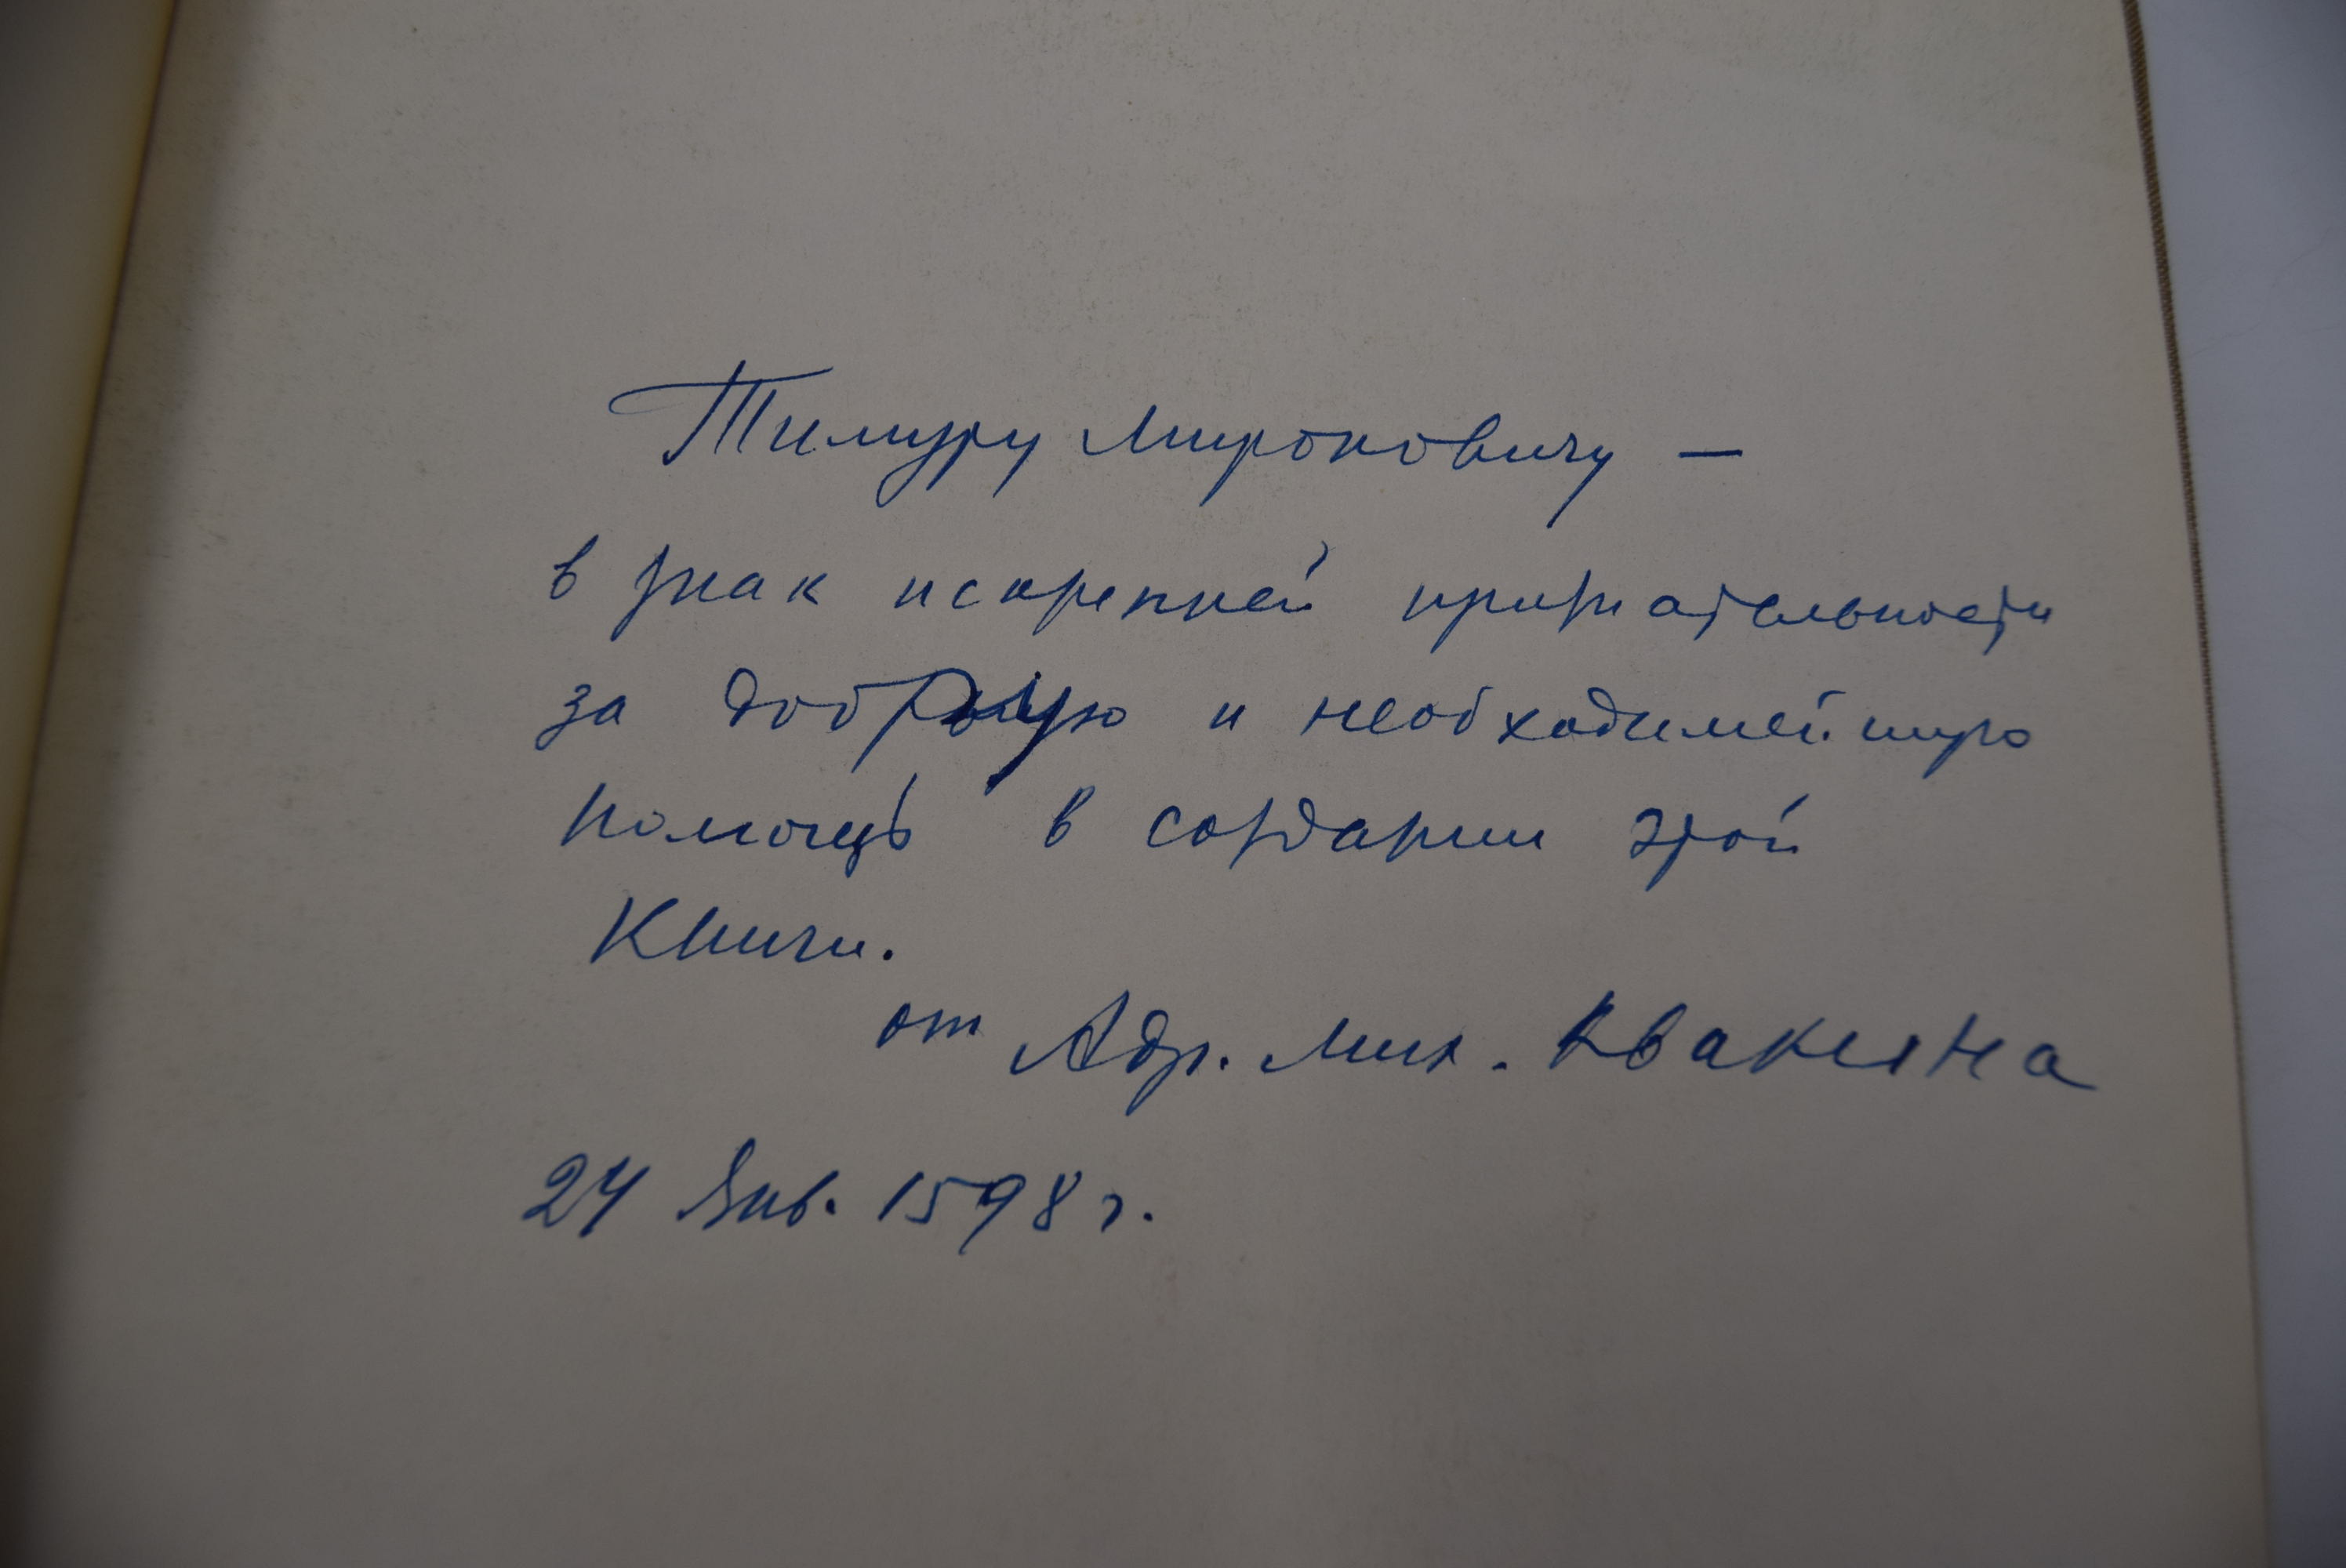 Тимуру Мироновичу —
в знак искренней признательности
за добрую и необходимейшую
помощь в создании этой
Книги.
от Адр. Мих. Квакина
24 Янв. 1598 г.